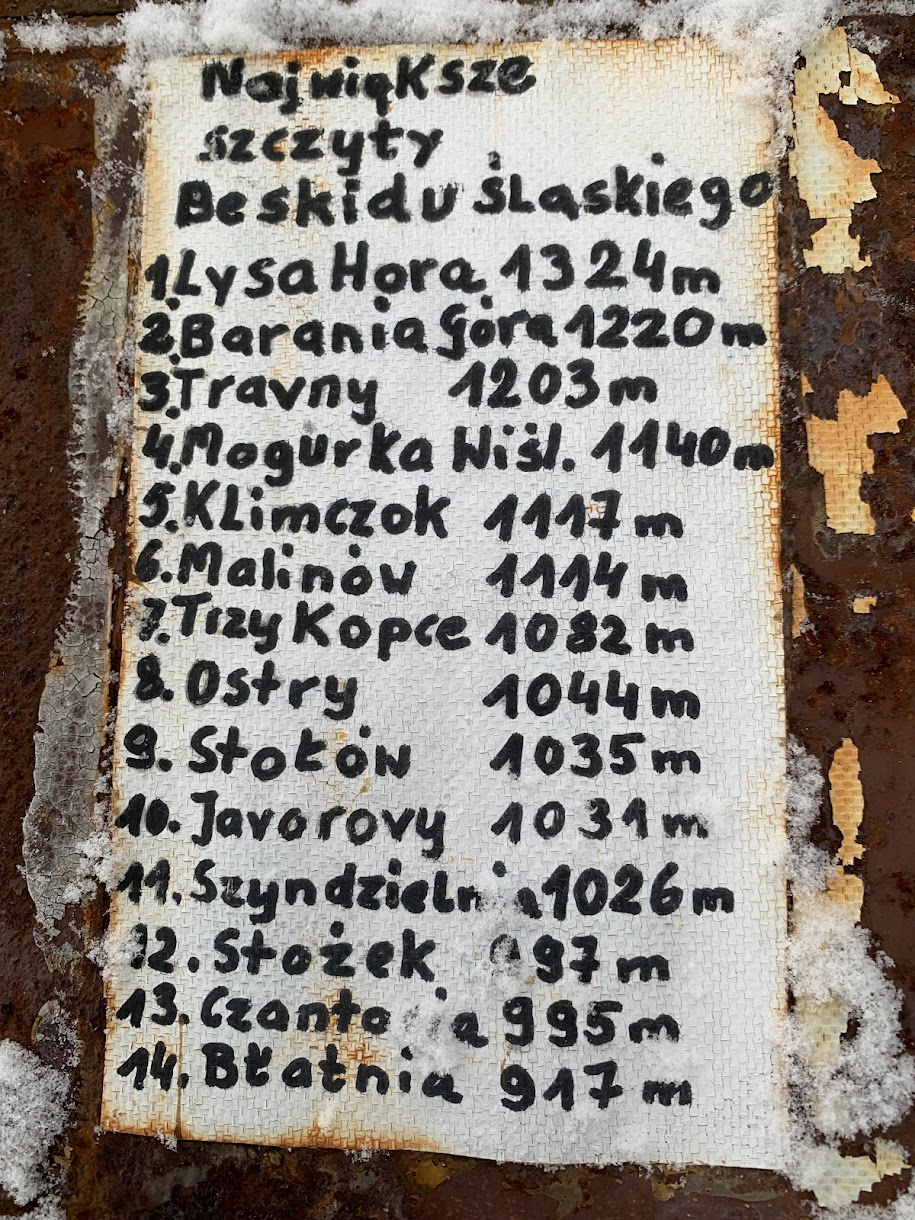 Największe
szczyty
Beskidu śLąskiego
1.Lysa Hora 1324m
2.Barania Góra 1220m
3.Travny 1203m
4.Mogurka Wiśl. 1140m
5.KLimczok 1117m
6.Malinów 1114m
7.Trzy Kopce 1082m
8.Ostry 1044m
9. Stołów 1035m
10. Javorovy 1031m
11. Szyndzielnia 1026m
12. Stożek 997m
13. Czantoria 995m
14. Błatnia 917m